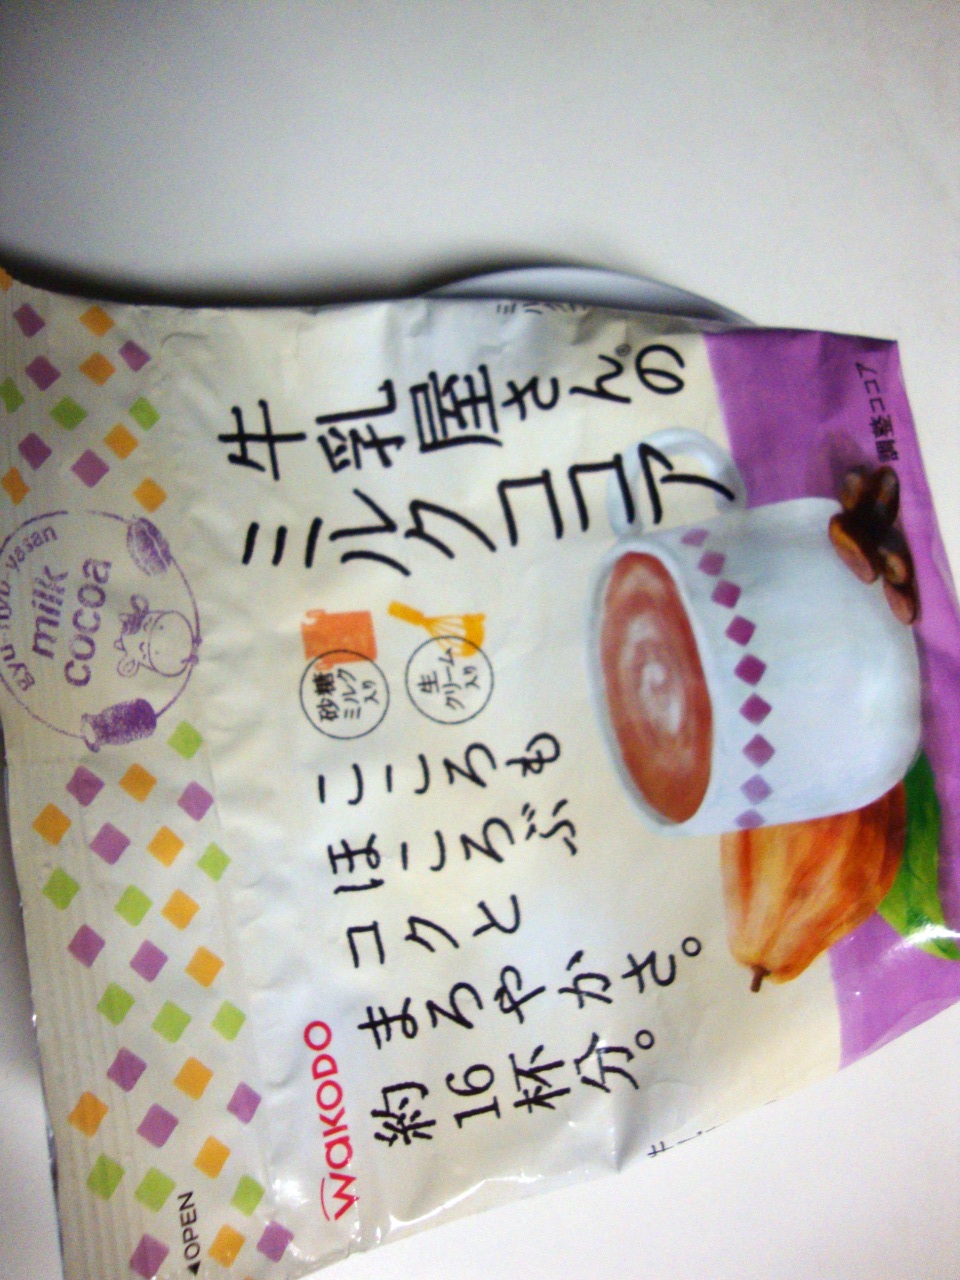 gyu-nyu-yasan
milk
cocoa
牛乳屋さん®の
ミルクココア
砂糖
ミルク
入り
生
クリーム
入り
こころも
ほころぶ
コクと
まろやかさ。
約16杯分。
WaKODO
◀OPEN
調整ココア